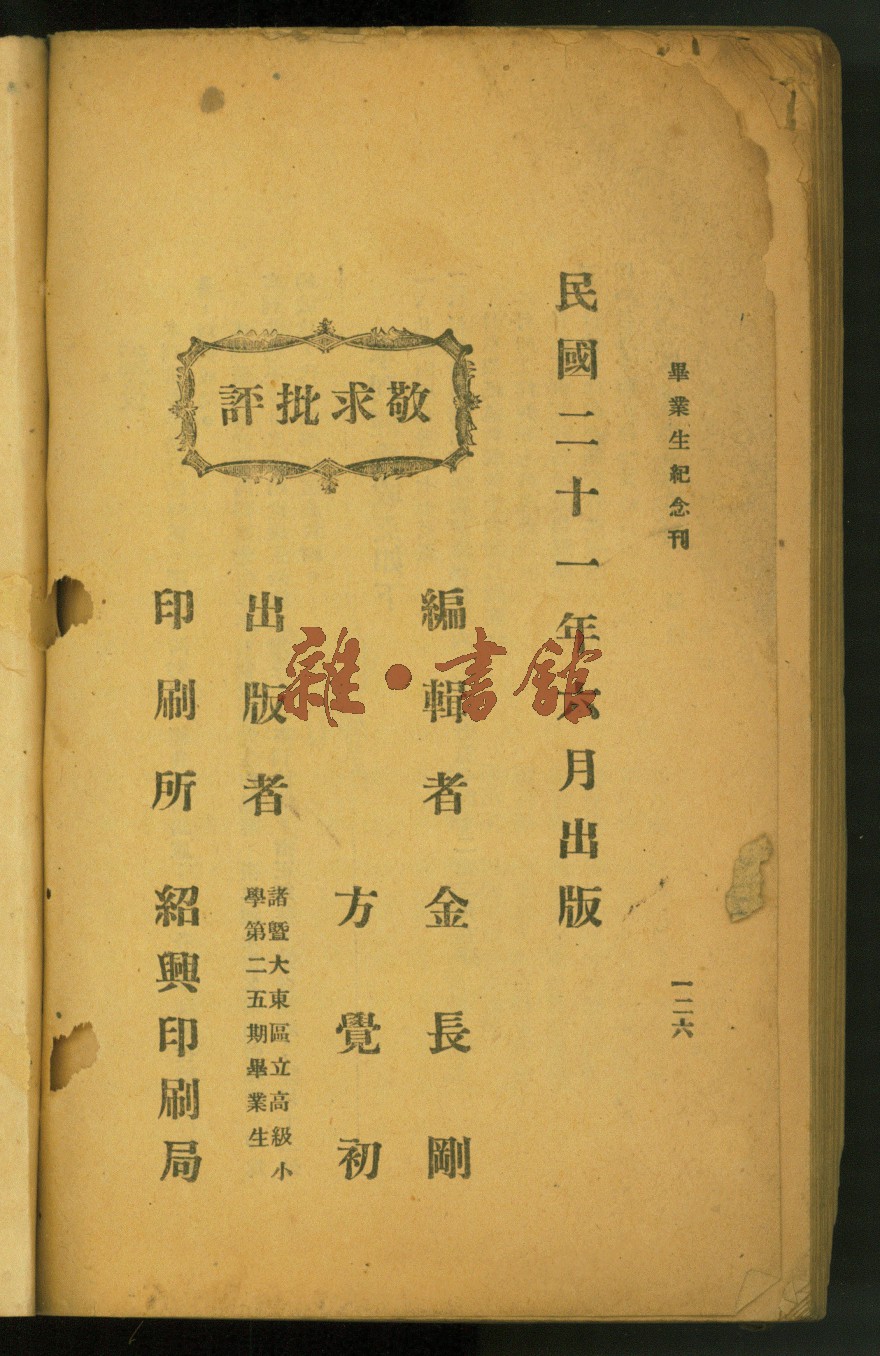 畢業生紀念刊
一二六
民國二十一年六月出版
敬求批評
編輯者 金長剛
方覺初
出版者 諸暨大東區立高級小
學第二五期畢業生
印刷所 紹興印刷局
雜·書館